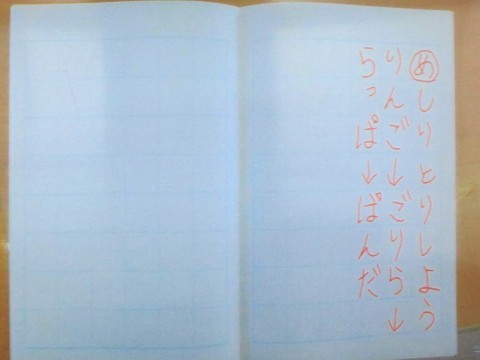 めしりとりしよう
りんご↓ごりら↓
らっぱ↓ぱんだ